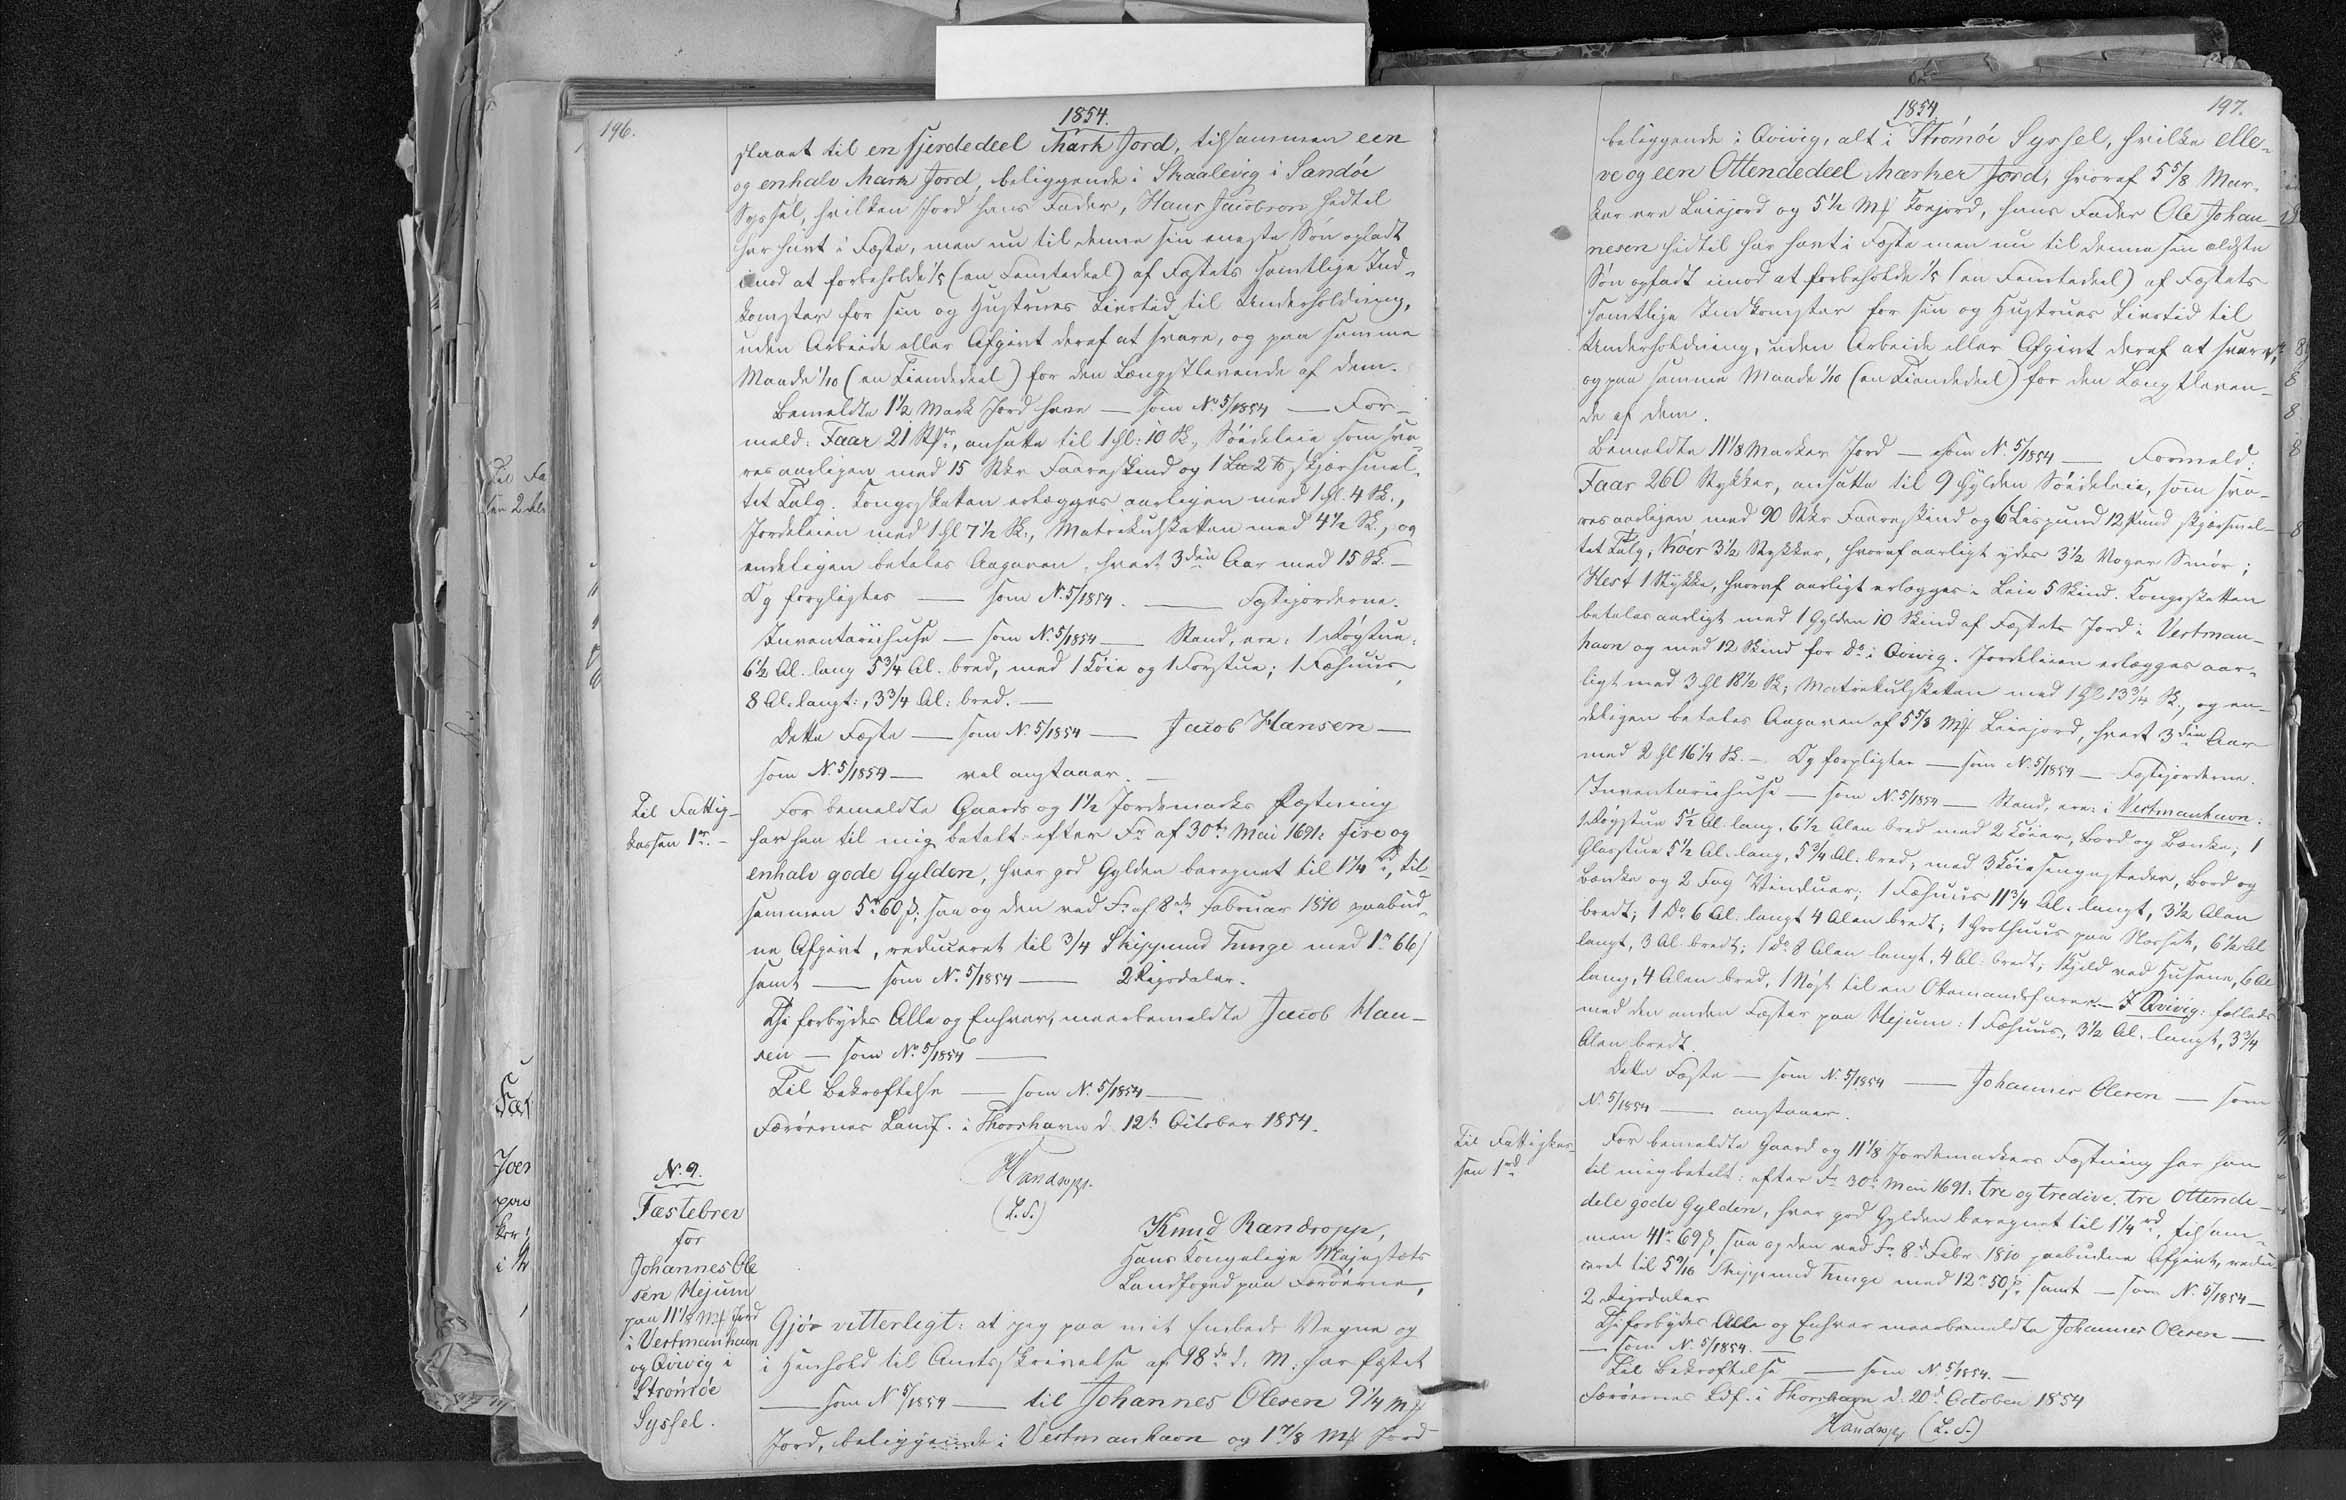 196.
1854.
skaaret til en fjerdedeel Mark Jord, tilsammen een
og enhalv Mark Jord, beliggende i Skaalevig i Sandöe
Syssel, hvilken Jord hans Fader, Hans Jacobson hidtil
har havt i Fæste, men nu til denne sin eneste Søn opladt
imod at forbeholde 1/5 (en Femtedeel) af Fæstets samtlige Ind-
komster for sin og Hustrues Livstid til Underholdning,
uden Arbeide eller Afgivt deraf at svare, og paa samme
Maade 1/10 (en Tiendedeel) for den Længstlevende af dem.
Bemeldte 1½ Mark Jord have — som No. 5/1854 — For-
meld: Faar 21 Stkr, ansatte til 1 Gl: 10 Sk, Söideleie som sva-
res aarligen med 15 Stkr Faareskind og 1 L℔ 2 ℔ skjærsmel-
tet Talg. Kongsskatten erlægges aarligen med 1 Gl. 4 Sk.,
Jordeleien med 1 Gl 7½ Sk., Matrikulskatten med 4½ Sk., og
endeligen betales Aagaven, hvert 3die Aar med 15 Sk. —
Og forpligtes — som No. 5/1854. — Fæstejorderne.
Inventariihuse — som No. 5/1854 — Stand, ere: 1 Røgstue,
6½ Al. lang 5¾ Al. bred, med 1 Köie og 1 Forstue; 1 Fæhuus,
8 Al. langt:, 3¾ Al: bred. —
Dette Fæste — som No. 5/1854 — Jacob Hansen —
som No. 5/1854 — vel anstaaer. —
Til Fattig-
kassen 1rd. —
For bemeldte Gaards og 1½ Jordemarks Fæstning
har han til mig betalt: efter Fr af 30te Mai 1691: fire og
enhalv gode Gylden, hver god Gylden beregnet til 1¼ rd, til-
sammen 5rd 60 ß; saa og den ved Fr af 8de Februar 1810 paabud-
ne Afgivt, reduceret til 3/4 Skippund Tunge med 1rd 66 ß
samt — som No. 5/1854 — 2 Rigsdaler.
Thi forbydes Alle og Enhver, meerbemeldte Jacob Han-
sen — som No. 5/1854 —
Til Bekræftelse — som No. 5/1854 —
Færöernes Landf. i Thorshavn d. 12te October 1854.
(L.S.)
No. 9.
Fæstebrev
for
Johannes Ole
sen Hejum
paa 11⅛ Mk Jord
i Vestmanhavn
og Qvivig i
Strömöe
Syssel.
Knud Randropp,
Hans Kongelige Majestæts
Landfoged paa Færöerne,
Gjör vitterligt: at jeg paa mit Embeds Vegne og
i Henhold til Amtsskrivelse af 18de d. M. har fæstet
— som No 5/1854 — til Johannes Olesen 9¼ Mk
Jord, beliggende i Vestmanhavn og 1⅞ Mk Jord
1854
197.
beliggende i Qvivig, alt i Strömöe Syssel, hvilke elle-
ve og een Ottendedeel Marker Jord, hvoraf 5⅝ Mar-
ker ere Leiejord og 5½ Mk Konjord, hans Fader Ole Johan-
nesen hidtil har havt i Fæste men nu til denne sin ældste
Søn opladt imod at forbeholde 1/5 (en Femtedeel) af Fæstets
samtlige Indkomster for sin og Hustrues Livstid til
Underholdning, uden Arbeide eller Afgivt deraf at svare,
og paa samme Maade 1/10 (en Tiendedeel) for den Længstleven-
de af dem.
Bemeldte 11⅛ Marker Jord — som No. 5/1854 — Formeld:
Faar 260 Stykker, ansatte til 9 Gylden Söideleie, som sva-
res aarligen med 90 Stkr Faareskind og 6 Lispund 12 Pund skjærsmel-
tet Talg, Köer 3½ Stykker, hvoraf aarligt ydes 3½ Voger Smör;
Hest 1 Stykke, hvoraf aarligt erlægges i Leie 5 Skind. Kongsskatten
betales aarligt med 1 Gylden 10 Skind af Fæstets Jord i Vestman-
havn og med 12 Skind for Do i Qvivig. Jordeleien erlægges aar-
ligt med 3 Gl 18½ Sk; Matrikulskatten med 1 Gl 13¾ Sk, og en-
deligen betales Aagaven af 5⅝ Mk Leiejord, hvert 3die Aar
med 2 Gl 16¼ Sk. — Og forpligtes — som No. 5/1854 — Fæstejorderne.
Inventariihuse — som No. 5/1854 — Stand, ere: i Vestmanhavn:
1 Røgstue 5½ Al. lang, 6½ Alen bred med 2 Köier, Bord og Bænke; 1
Glasstue 5½ Al. lang, 5¾ Al. bred, med 3 Köiesengesteder, Bord og
Bænke og 2 Fag Vinduer; 1 Fæhuus 11¾ Al. langt, 3½ Alen
bredt; 1 Do 6 Al. langt 4 Alen bredt; 1 Grothuus paa 6½ Al
langt, 3 Al. bredt; 1 Do 8 Alen langt, 4 Al. bredt; Hjeld ved Husene, 6 Al
lang, 4 Alen bred, 1 Nøst til en Ottemandsfarer. — I Qvivig: fælleds
med den anden Fæster paa Hejum: 1 Fæhuus, 3½ Al. langt, 3¾
Alen bredt.
Dette Fæste — som No. 5/1854 — Johannes Olesen — som
No. 5/1854 — anstaaer.
Til Fattigkas-
sen 1rd
For bemeldte Gaard og 11⅛ Jordemarkers Fæstning har han
til mig betalt: efter Fr 30te Mai 1691: tre og tredive, tre Ottende-
dele gode Gylden, hver god Gylden beregnet til 1¼ rd, tilsam-
men 41rd 69 ß, saa og den ved Fr 8de Febr 1810 paabudne Afgivt, redu-
ceret til 5 9/16 Skippund Tunge med 12rd 50 ß samt — som No. 5/1854 —
2 Rigsdaler
Thi forbydes Alle og Enhver meerbemeldte Johannes Olesen —
— som No. 5/1854. —
Til Bekræftelse — som No. 5/1854. —
Færöernes Ldf. i Thorshavn d. 20de October 1854
(L.S.)